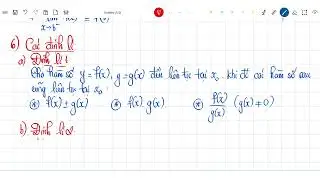 lim f(x) = f(b)
x→b⁻
6) Các định lí
a) Định lí 1:
Cho hàm số y = f(x), y = g(x) đều liên tục tại x₀. Khi đó các hàm số sau
cũng liên tục tại x₀
* f(x) ± g(x) * f(x). g(x) * f(x)/g(x) (g(x) ≠ 0)
b) Định lí 2